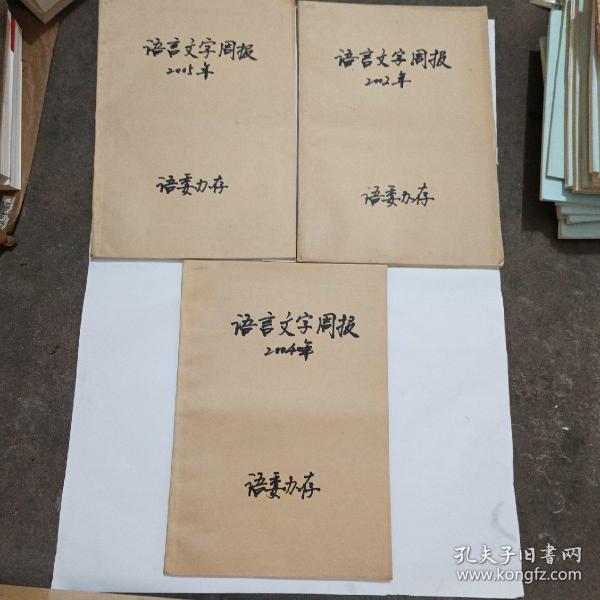 语言文字周报
2005年
语委办存
语言文字周报
2002年
语委办存
语言文字周报
2004年
语委办存
孔夫子旧书网
www.kongfz.com